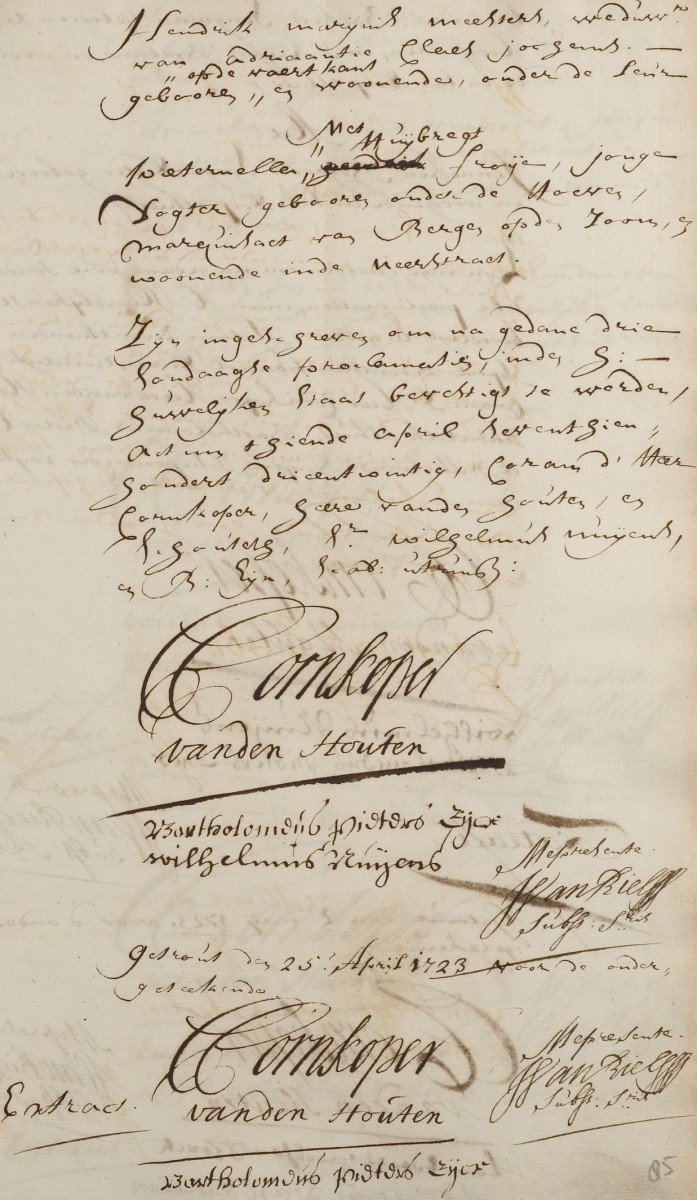 Hendrik marijnis meesters, weduwr.
van adriaantie Claes jochems. —
„ opde vaertkant
gebooren „ en woonende, onder de Leur
Met
„ Huijbregt
pieternella „ Froije, jonge
Dogter gebooren onder de Hoeven,
marquisaet van Bergen opden Zoom, en
woonende inde Neerstraet.
Zijn ingeschreven om na gedane drie
Sondaagse proclamatien, inden H: —
huwelijken staat bevestigt te werden,
Actum thiende april seventhien„
hondert drieentwintig, Coram d' Heer
Cornkoper, heere vanden houten, en
Schouteth, Sr. wilhelmus nuijens,
en B: Zijn, Schab: utriusq:
Cornkoper
vanden Houten
Bartholomeus Pieters Zijer
Wilhelmus Nuijens
Mepresente.
WVan Riel
Subst: Srius
Getrout den 25: April 1723 voor de onder„
geteekende
Cornkoper
vanden Houten
Mepresente.
WVan Riel
Subst: Srius
Extract.
Bartholomeus Pieters Zijer
85